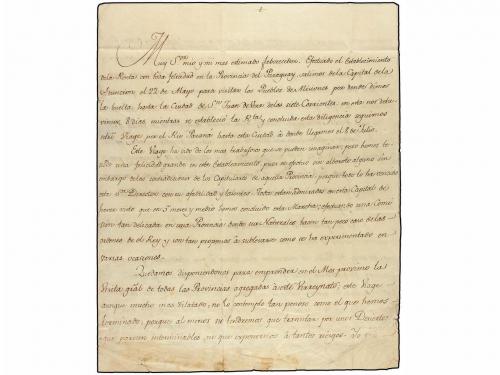 Muy S.or mio y mi mas estimado favorecedor. Efectuado el Establecimiento
de la Renta con toda felicidad en la Provincia del Paraguay, salimos de la Capital de la
Asuncion el 22 de Mayo para visitar los Pueblos de Misiones por donde dimos
la buelta hasta la Ciudad de S.n Juan de Vera de las siete Corrientes, en esta nos detu-
vimos 8 dias, mientras se estableció la R.ta y concluida esta diligencia seguimos
nro Viage por el Rio Paraná hasta esta Ciudad à donde llegamos el 8 de Julio.
Este Viage ha sido de los mas trabajosos que se pueden imaginar, pero hemos te-
nido una felicidad grande en este Establecimiento, pues se efectuó sin alboroto alguno sin
embargo de las de los Capitulares de aquella Provincia, porque todo lo ha vencido
este S.or Director con su afabilidad y talento. Todos estan admirados en esta Capital de
haver visto que en 5 meses y medio hemos concluido esta Marcha, efectuando una Comi-
sion tan delicada en una Provincia donde sus Naturales hacen tan poco caso de las
ordenes de el Rey y son tan propensos à sublevarse como se ha experimentado en
varias ocasiones.
Quedamos disponiendonos para emprender en el Mes proximo la
Visita gral de todas las Provincias agregadas à este Virreynato, este Viage
aunque mucho mas dilatado, no lo contemplo tan penoso como el que hemos
terminado, porque al menos no tendremos que transitar por unos Desiertos
que parecen interminables, ni que exponernos à tantos riesgos. Yo